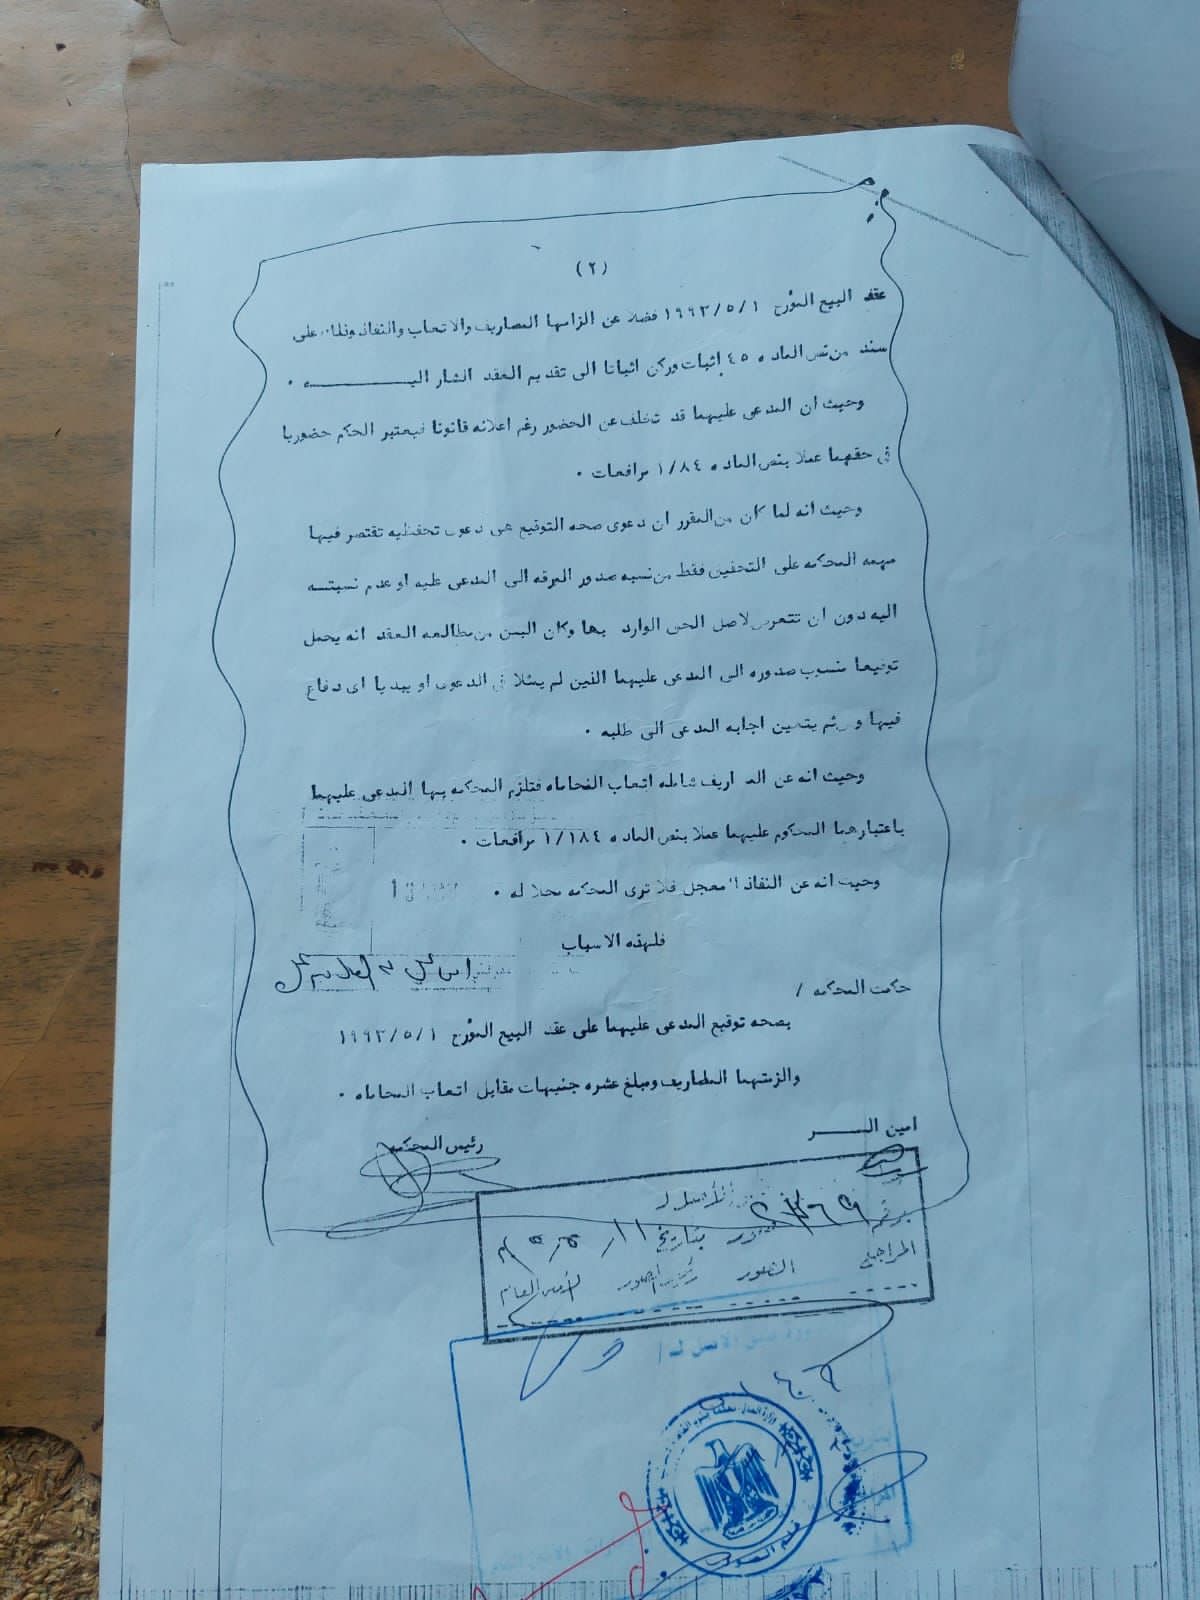 (٢)
عقد البيع المؤرخ ١٩٩٣/٥/١ فضلا عن الزامهما المصاريف والاتعاب والنفاذ وذلك على
سند من نص الماده ٤٥ إثبات وركن اثباتا الى تقديم العقد المشار اليـــــــــه ٠
وحيث ان المدعى عليهما قد تخلف عن الحضور رغم اعلانه قانونا فيعتبر الحكم حضوريا
فى حقهما عملا بنص الماده ١/٨٤ مرافعات ٠
وحيث انه لما كان من المقرر ان دعوى صحه التوقيع هى دعوى تحفظيه تقتصر فيها
مهمه المحكمه على التحقيق فقط من نسبه صدور الورقه الى المدعى عليه او عدم نسبتـــه
اليه دون ان تتعرض لاصل الحق الوارد بها وكان البين من مطالعه العقد انه يحمل
توقيعا منسوب صدوره الى المدعى عليهما الذين لم يمثلا فى الدعوى او يبديا اى دفاع
فيها ومن ثم يتعين اجابه المدعى الى طلبه ٠
وحيث انه عن المصاريف شامله اتعاب المحاماه فتلزم المحكمه بها المدعى عليهما
باعتبارهما المحكوم عليهما عملا بنص الماده ١/١٨٤ مرافعات ٠
وحيث انه عن النفاذ المعجل فلا ترى المحكمه محلا له ٠
فلهذه الاسباب
حكمت المحكمه /
بصحه توقيع المدعى عليهما على عقد البيع المؤرخ ١٩٩٣/٥/١
والزمتهما المصاريف ومبلغ عشره جنيهات مقابل اتعاب المحاماه ٠
امين الســـــر
رئيس المحكمه
الأصل لـ
برقم
بتاريخ
المراجع
المصور